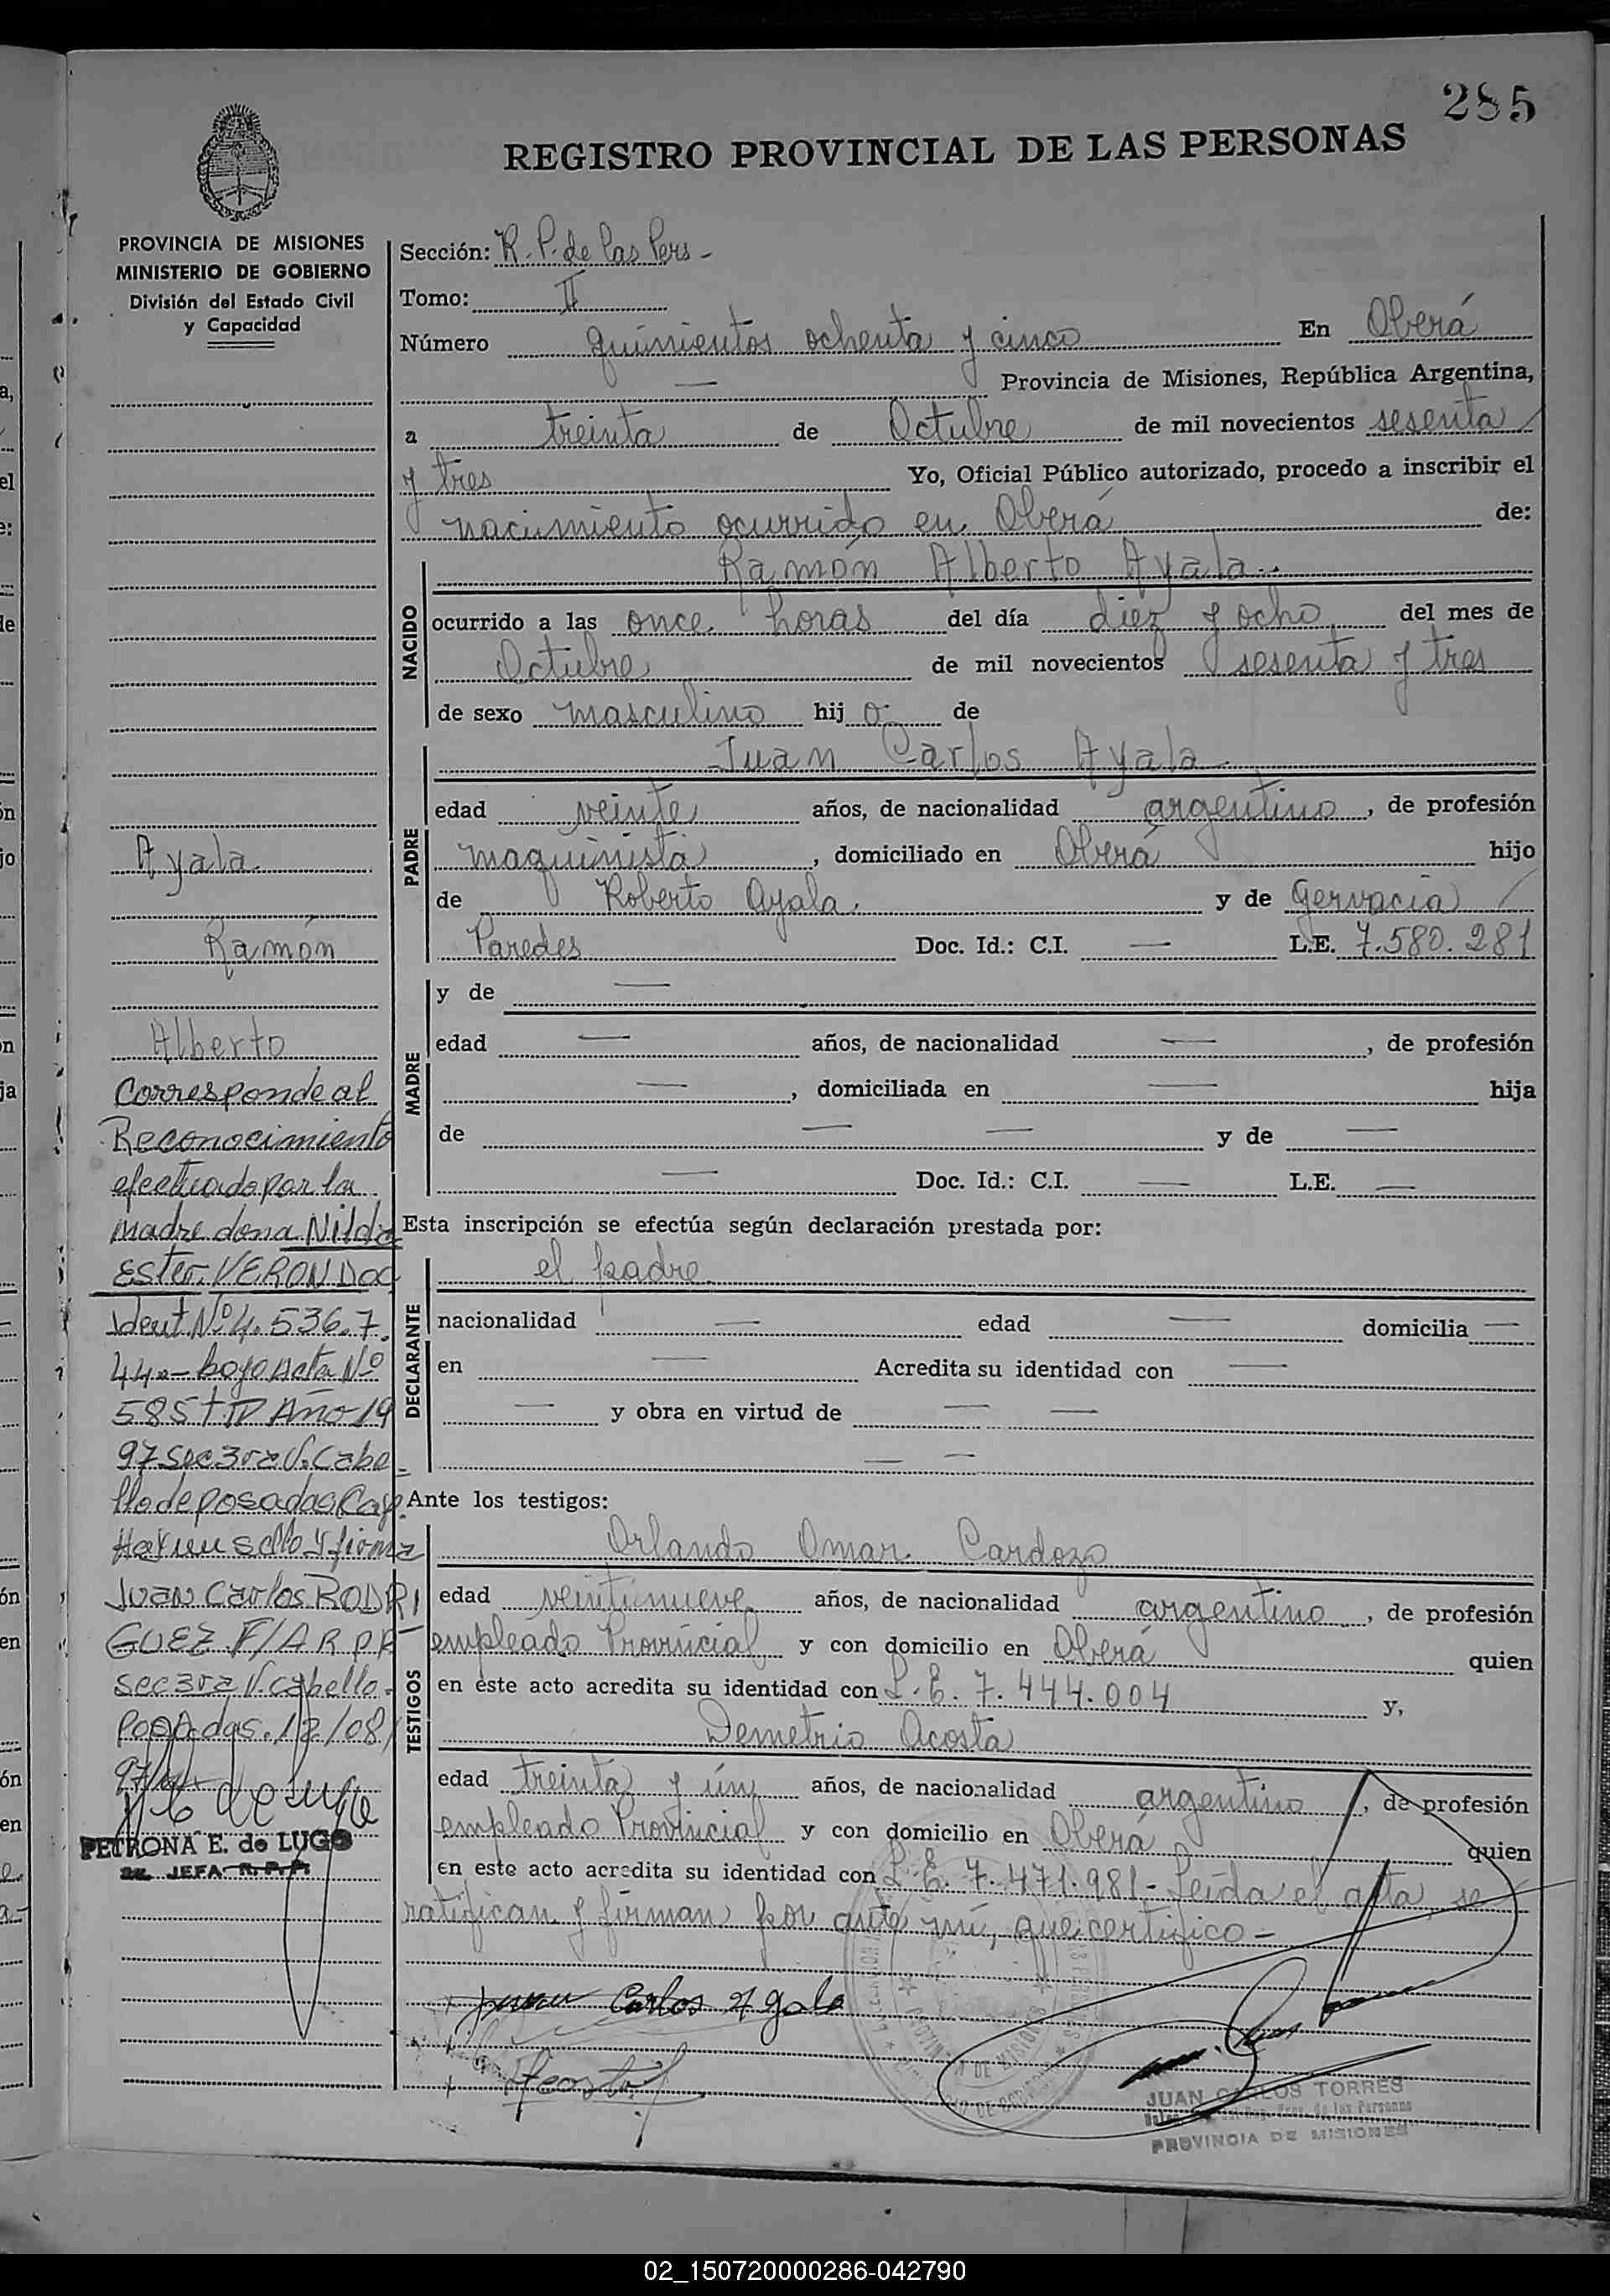 285
REGISTRO PROVINCIAL DE LAS PERSONAS
PROVINCIA DE MISIONES
MINISTERIO DE GOBIERNO
División del Estado Civil
y Capacidad
Sección: R. P. de las Pers -
Tomo: II
Número quinientos ochenta y cinco En Oberá
— Provincia de Misiones, República Argentina,
a treinta de Octubre de mil novecientos sesenta
y tres Yo, Oficial Público autorizado, procedo a inscribir el
nacimiento ocurrido en Oberá de:
NACIDO
Ramón Alberto Ayala.
ocurrido a las once horas del día diez y ocho del mes de
Octubre de mil novecientos sesenta y tres
de sexo masculino hij o de
PADRE
Juan Carlos Ayala
edad veinte años, de nacionalidad argentino, de profesión
maquinista, domiciliado en Oberá hijo
de Roberto Ayala y de Gervacia
Paredes Doc. Id.: C.I. — L.E. 7.580.281
MADRE
y de —
edad — años, de nacionalidad —, de profesión
—, domiciliada en — hija
de — — y de —
— Doc. Id.: C.I. — L.E. —
Esta inscripción se efectúa según declaración prestada por:
DECLARANTE
el padre
nacionalidad — edad — domicilia —
en — Acredita su identidad con —
— y obra en virtud de — —
— —
Ante los testigos:
TESTIGOS
Orlando Omar Cardozo
edad veintinueve años, de nacionalidad argentino, de profesión
empleado Provincial y con domicilio en Oberá quien
en este acto acredita su identidad con L.E. 7.444.004 y,
Demetrio Acosta
edad treinta y ún años, de nacionalidad argentino, de profesión
empleado Provincial y con domicilio en Oberá quien
en este acto acredita su identidad con L.E. 7.471.981 - Leída el acta, se
ratifican y firman por ante mí, que certifico -
Juan Carlos Ayala
Acosta
JUAN CARLOS TORRES
PROVINCIA DE MISIONES
Ayala
Ramón
Alberto
Corresponde al
Reconocimiento
efectuado por la
madre dona Nilda
Ester VERON DOC
Ident Nº 4.536.7
44.- bajo Acta Nº
585 Año 19
97 Sec 3ra V. Cabe
llo de posadas
Hay un sello y firma
Juan Carlos RODRI
GUEZ
sec 3ra V. cabello.
Posadas. 12/08/
97
PETRONA E. de LUGO
JEFA R.P.P.
02_150720000286-042790